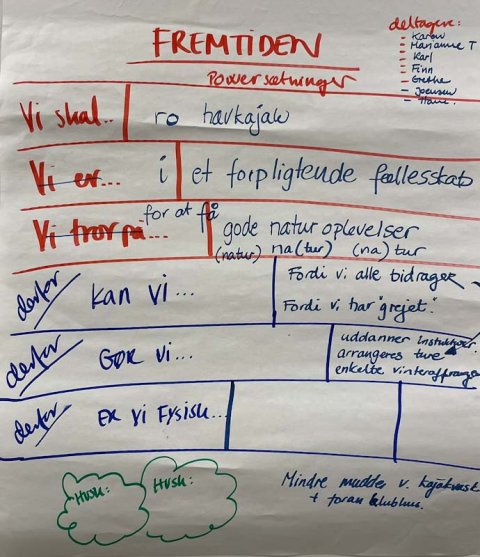 FREMTIDEN
Powersætninger
deltagere:
- Karen
- Marianne T
- Karl
- Finn
- Grethe
- Joensen
Vi skal.. ro havkajak
Vi er... i et forpligtende fællesskab
Vi tror på... for at få gode naturoplevelser
(natur) na(tur) (na)tur
derfor kan vi... Fordi vi alle bidrager
Fordi vi har "grejet".
derfor GØR vi... uddanner instruktører.
arrangeres ture
enkelte vinterarrange
derfor ER vi Fysisk...
Husk: Husk:
Mindre mudder v. kajakvask
+ foran klubhus.